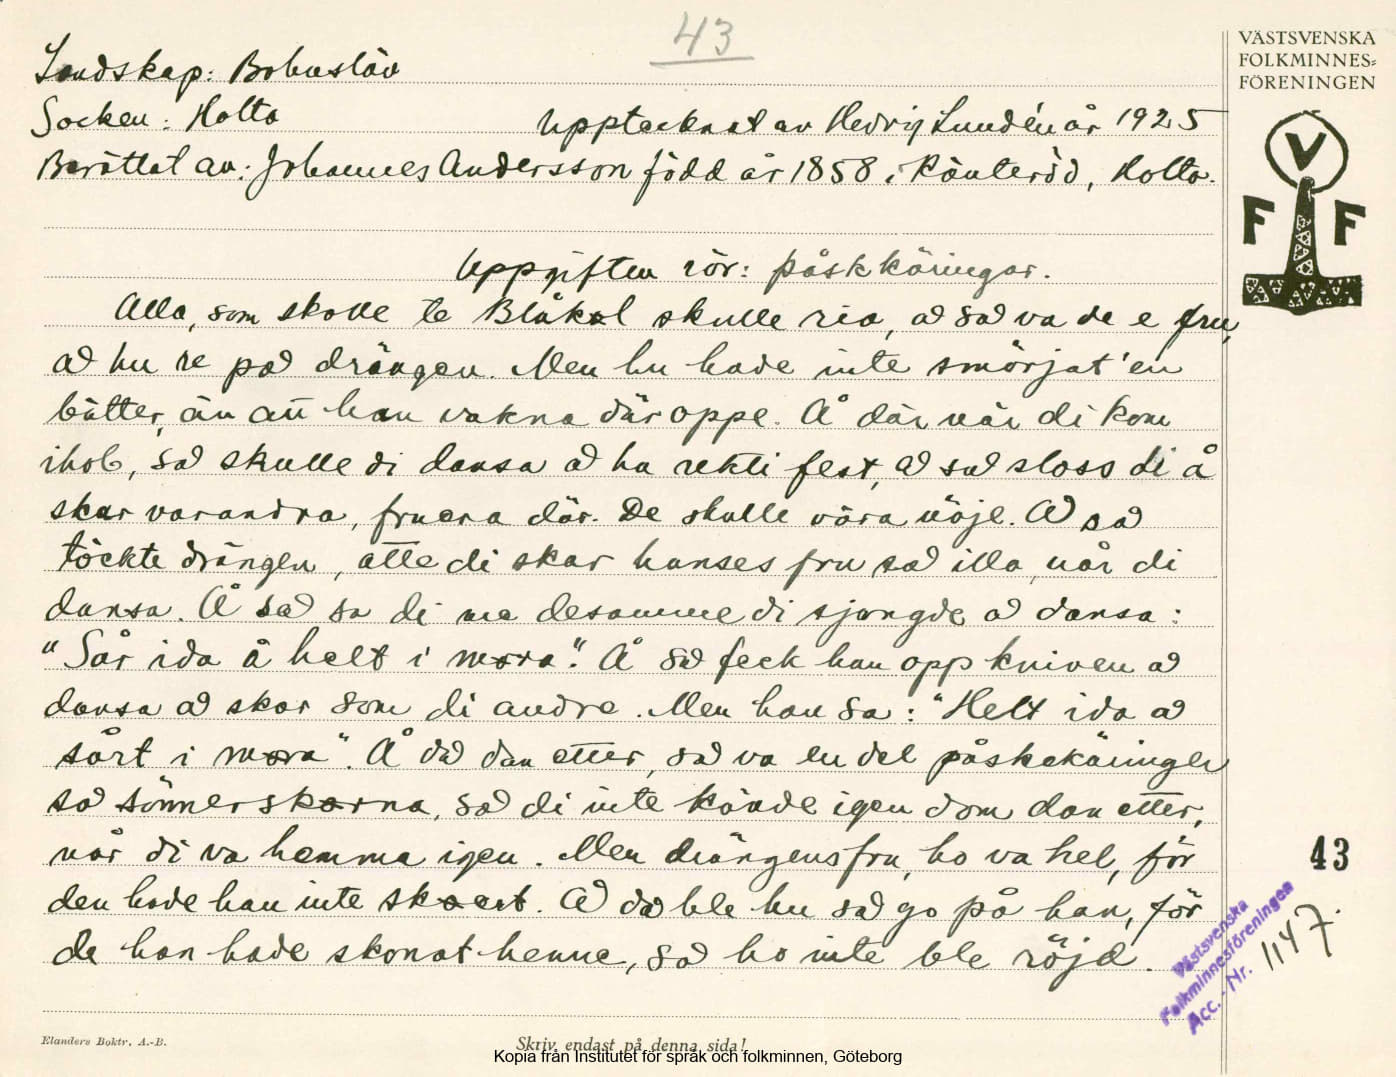 43
VÄSTSVENSKA
FOLKMINNES=
FÖRENINGEN
V
F F
Landskap: Bohuslän
Socken: Holta
Upptecknat av Hedvig Lundén år 1925
Berättat av: Johannes Andersson född år 1858 i Känteröd, Holta.
Uppgiften rör: påskkäringar.
Alla, som skolle te Blåkol skulle ria, å så va de e fru,
å hu re på drängen. Men hu hade inte smörjat 'en
bätter, än att han vakna där oppe. Å där när di kom
ihob, så skulle di dansa å ha rekti fest, å så sloss di å
skar varandra, fruera där. De skulle våra nöje. Å så
töckte drängen, atte di skar hanses fru så illa, når di
dansa. Å så sa di ma desamme di sjongde å dansa:
"Sår ida å helt i mora". Å så feck han opp kniven å
dansa å skar som di andre. Men han sa: "Helt ida å
sårt i mora". Å då dan etter, så va en del påskekäringer
så sönnerskorna, så di inte kände igen dom dan etter,
når di va hemma igen. Men drängens fru, ho va hel, för
den hade han inte skoert. Å då ble hu så go på han, för
de han hade skonat henne, så ho inte ble röjd.
43
Västsvenska
Folkminnesföreningen
Acc.-Nr. 1147.
Elanders Boktr. A.-B.
Skriv endast på denna sida!
Kopia från Institutet för språk och folkminnen, Göteborg